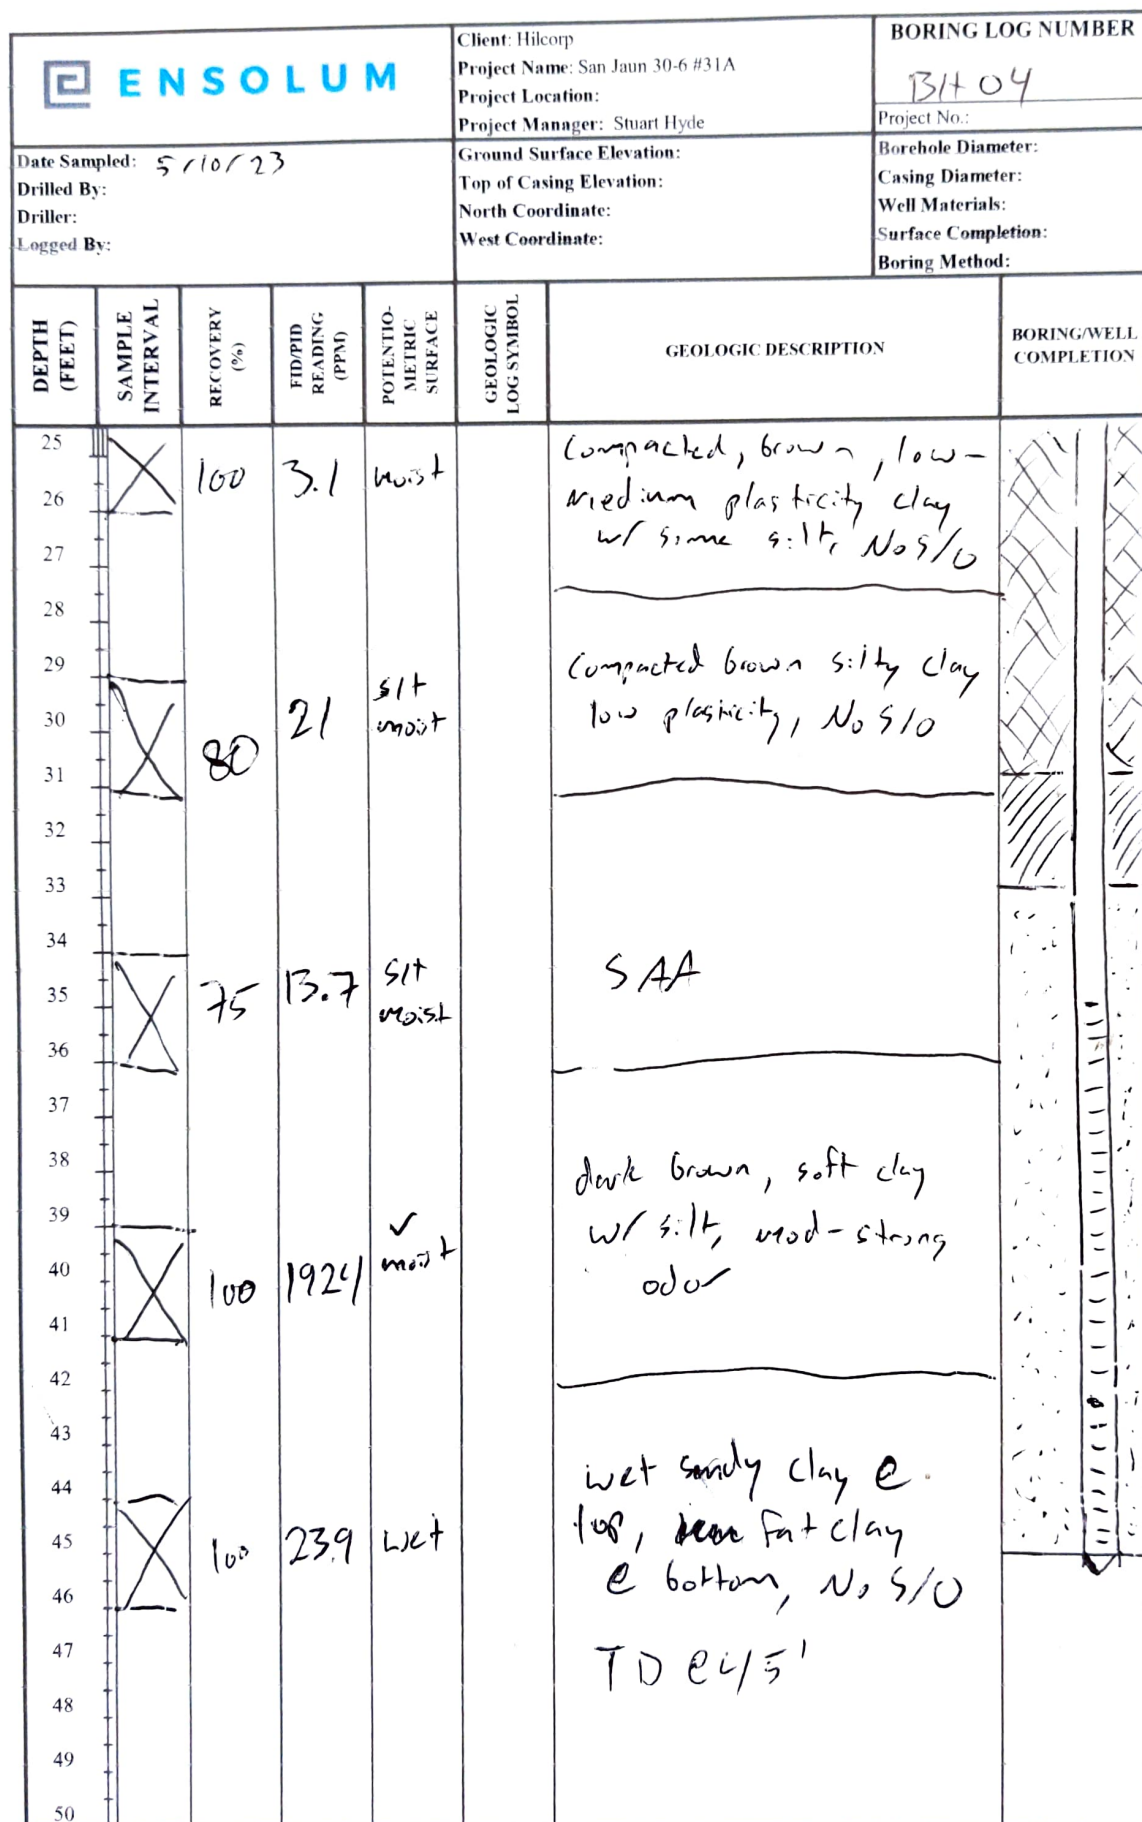 ENSOLUM
Client: Hilcorp
Project Name: San Jaun 30-6 #31A
Project Location:
Project Manager: Stuart Hyde
BORING LOG NUMBER
BH04
Project No.:
Date Sampled: 5/10/23
Drilled By:
Driller:
Logged By:
Ground Surface Elevation:
Top of Casing Elevation:
North Coordinate:
West Coordinate:
Borehole Diameter:
Casing Diameter:
Well Materials:
Surface Completion:
Boring Method:
DEPTH
(FEET)
SAMPLE
INTERVAL
RECOVERY
(%)
FID/PID
READING
(PPM)
POTENTIO-
METRIC
SURFACE
GEOLOGIC
LOG SYMBOL
GEOLOGIC DESCRIPTION
BORING/WELL
COMPLETION
25
100 3.1 moist
Compacted, brown, low-
medium plasticity clay
w/ some silt, No S/O
26
27
28
29
30
80 21 slt
moist
Compacted brown silty clay
low plasticity, No S/O
31
32
33
34
35
75 13.7 slt
moist
SAA
36
37
38
39
40
100 1924 v
moist
dark brown, soft clay
w/ silt, mod-strong
odor
41
42
43
44
45
100 23.9 wet
wet sandy clay @
top, fat clay
@ bottom, No S/O
TD @ 45'
46
47
48
49
50